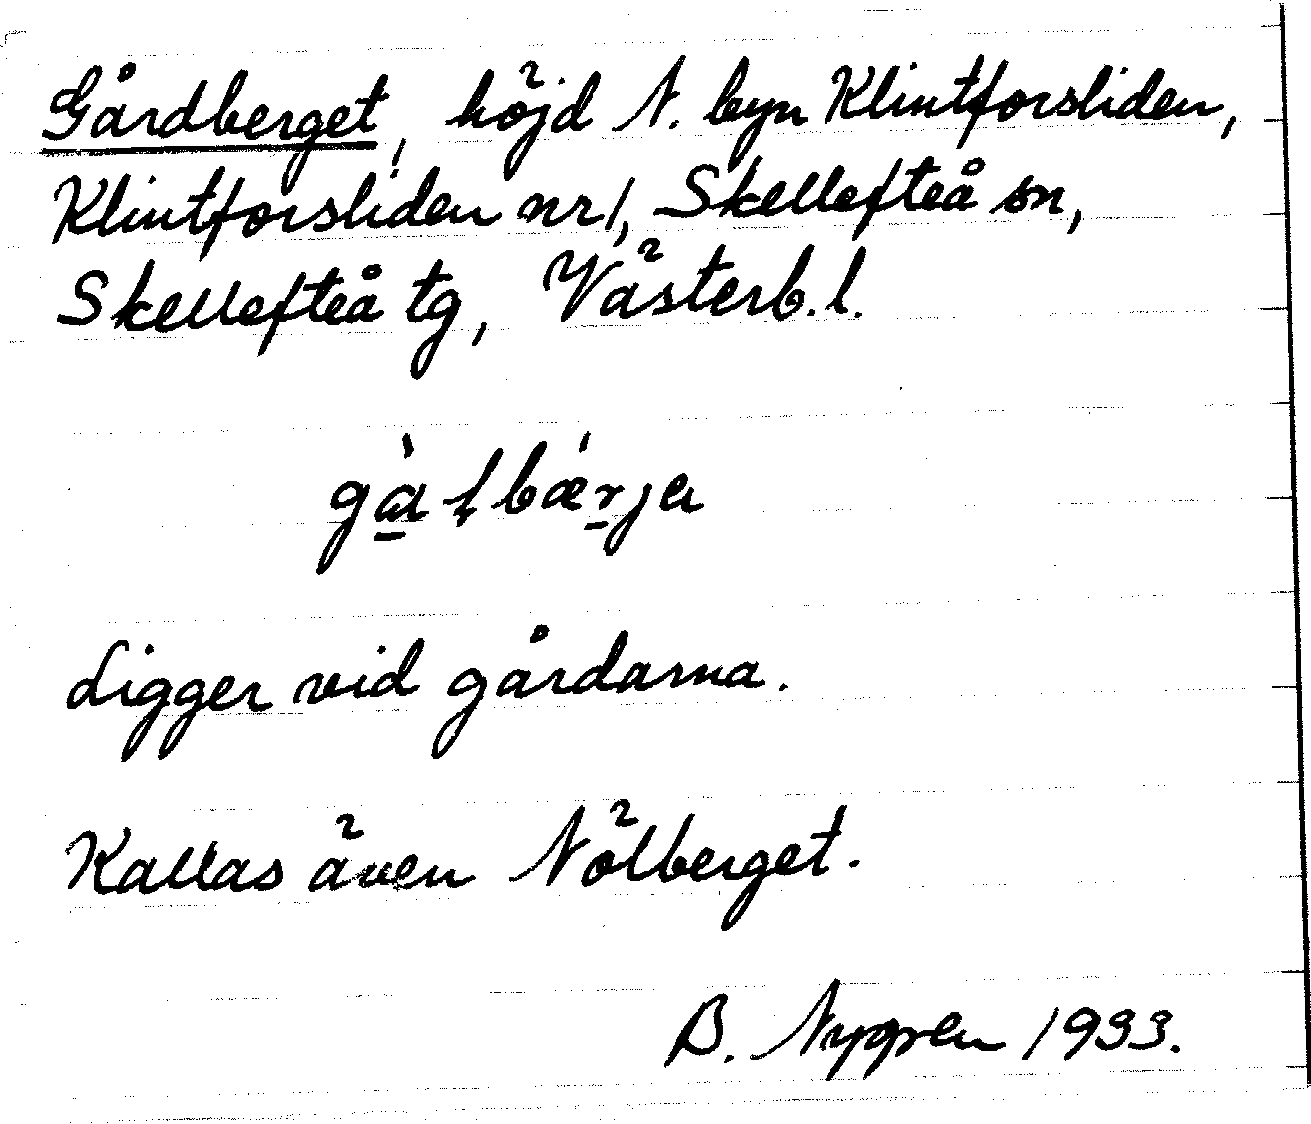 Gårdberget, höjd N. byn Klintforsliden,
Klintforsliden nr 1, Skellefteå sn,
Skellefteå tg, Västerb. l.
Ligger vid gårdarna.
Kallas även Nölberget.
B. Nygren 1933.